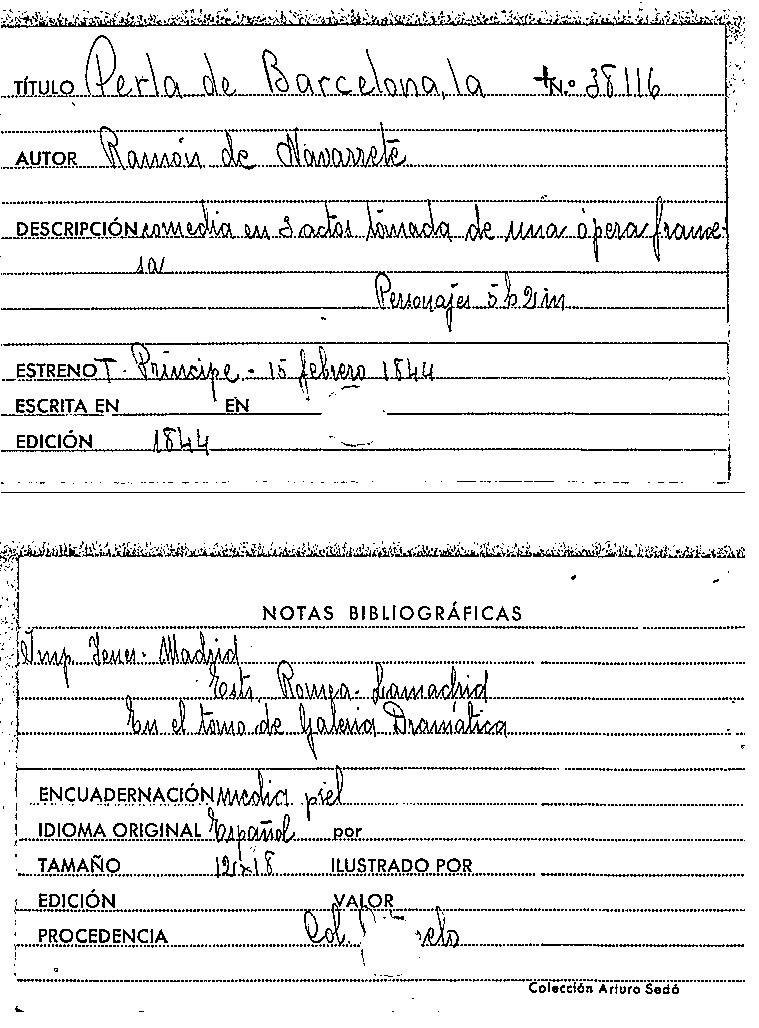 TÍTULO Perla de Barcelona, la +N.º 38116
AUTOR Ramón de Navarrete
DESCRIPCIÓN comedia en 3 actos tomada de una ópera france-
sa
Personajes 5h 2m
ESTRENO T. Príncipe - 15 febrero 1844
ESCRITA EN EN
EDICIÓN 1844
NOTAS BIBLIOGRÁFICAS
Imp Yenes - Madrid
Estr. Romea - Lamadrid
En el tomo de Galeria Dramática
ENCUADERNACIÓN media piel
IDIOMA ORIGINAL Español por
TAMAÑO 12x18 ILUSTRADO POR
EDICIÓN VALOR
PROCEDENCIA Col.
Colección Arturo Sedó